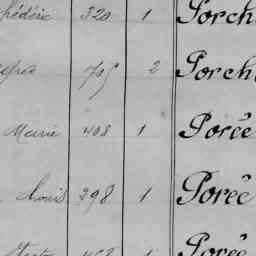 rédéric 320 1 Porch
705 2 Porch
Marie 408 1 Porée
Louis 398 1 Porée
1 Porée